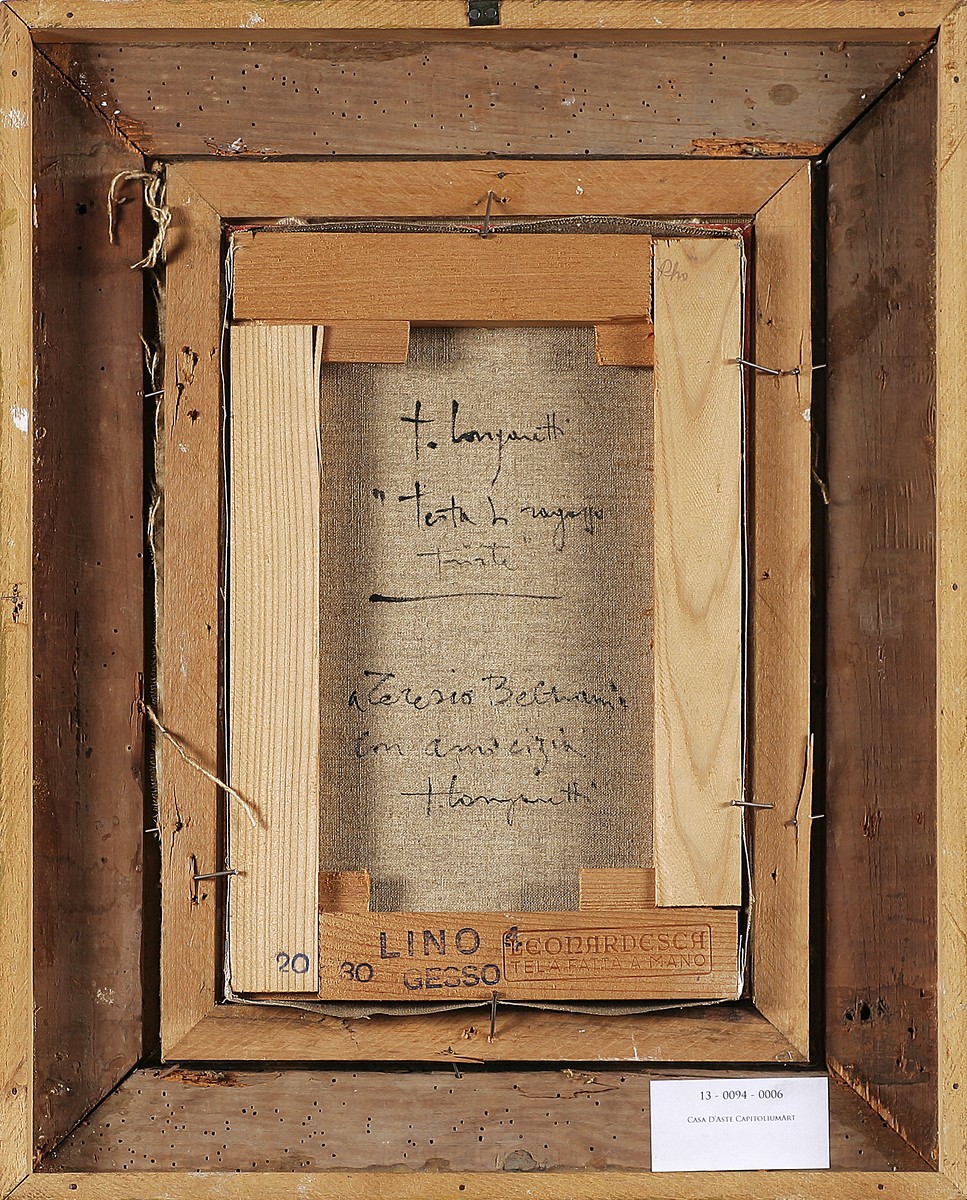 Pho
T. Longaretti
"Testa di ragazzo
triste"
a Teresio Beltrami
con amicizia
T. Longaretti
20
30
LINO 4
GESSO
LEONARDESCA
TELA FATTA A MANO
13 - 0094 - 0006
Casa D'Aste CapitoliumArt